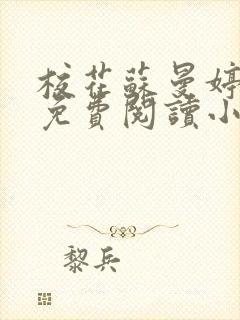 校花蘇曼婷
免費閱讀小
黎兵